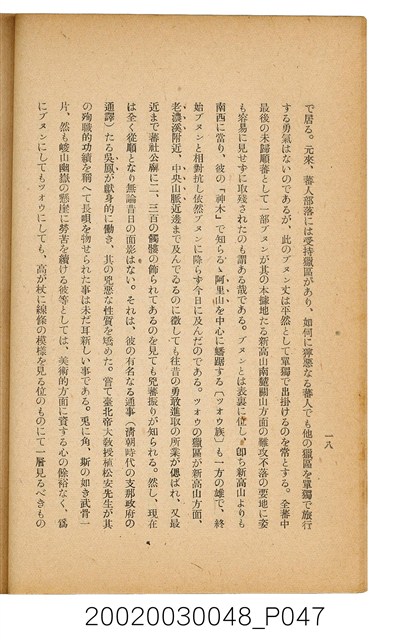 一八
で居る。元來、蕃人部落には受持獵區があり、如何に獰惡なる蕃人でも他の獵區を單獨で旅行
する勇氣はないのであるが、此のブヌン丈は平然として單獨で出掛けるのを常とする。全蕃中
最後の未歸順蕃として一部ブヌンが其の本據地たる新高山南麓關山方面の難攻不落の要地に姿
も容易に見せずに取殘されたのも謂ある哉である。ブヌンとは表裏に位し、卽ち新高山よりも
南西に當り、彼の「神木」で知らるゝ阿里山を中心に蟠踞する〔ツオウ族〕も一方の雄で、終
始ブヌンと相對抗し依然ブヌンに降らず今日に及んだのである。ツオウの獵區が新高山方面、
老濃溪附近、中央山脈近邊まで及んでゐるのに徵しても往昔の勇敢進取の所業が偲ばれ、又最
近まで蕃社公廨に二、三百の髑髏の飾られてあるのを見ても兇蕃振りが知られる。然し、現在
は全く從順となり無論昔日の面影はない。それは、彼の有名なる通事（淸朝時代の支那政府の
通譯）たる吳鳳が獻身的に働き、其の兇惡な性質を矯めた。嘗て臺北帝大敎授植松安先生が其
の殉職的功績を稱へて長唄を物せられた事は未だ耳新しい事である。兎に角、斯の如き武骨一
片、然も峻山幽嶽の懸崖に勞苦を續ける彼等としては、美術的方面に資する心の餘裕なく、爲
にブヌンにしてもツオウにしても、高が杖に線條の模樣を見る位のものにて一層見るべきもの
20020030048_P047